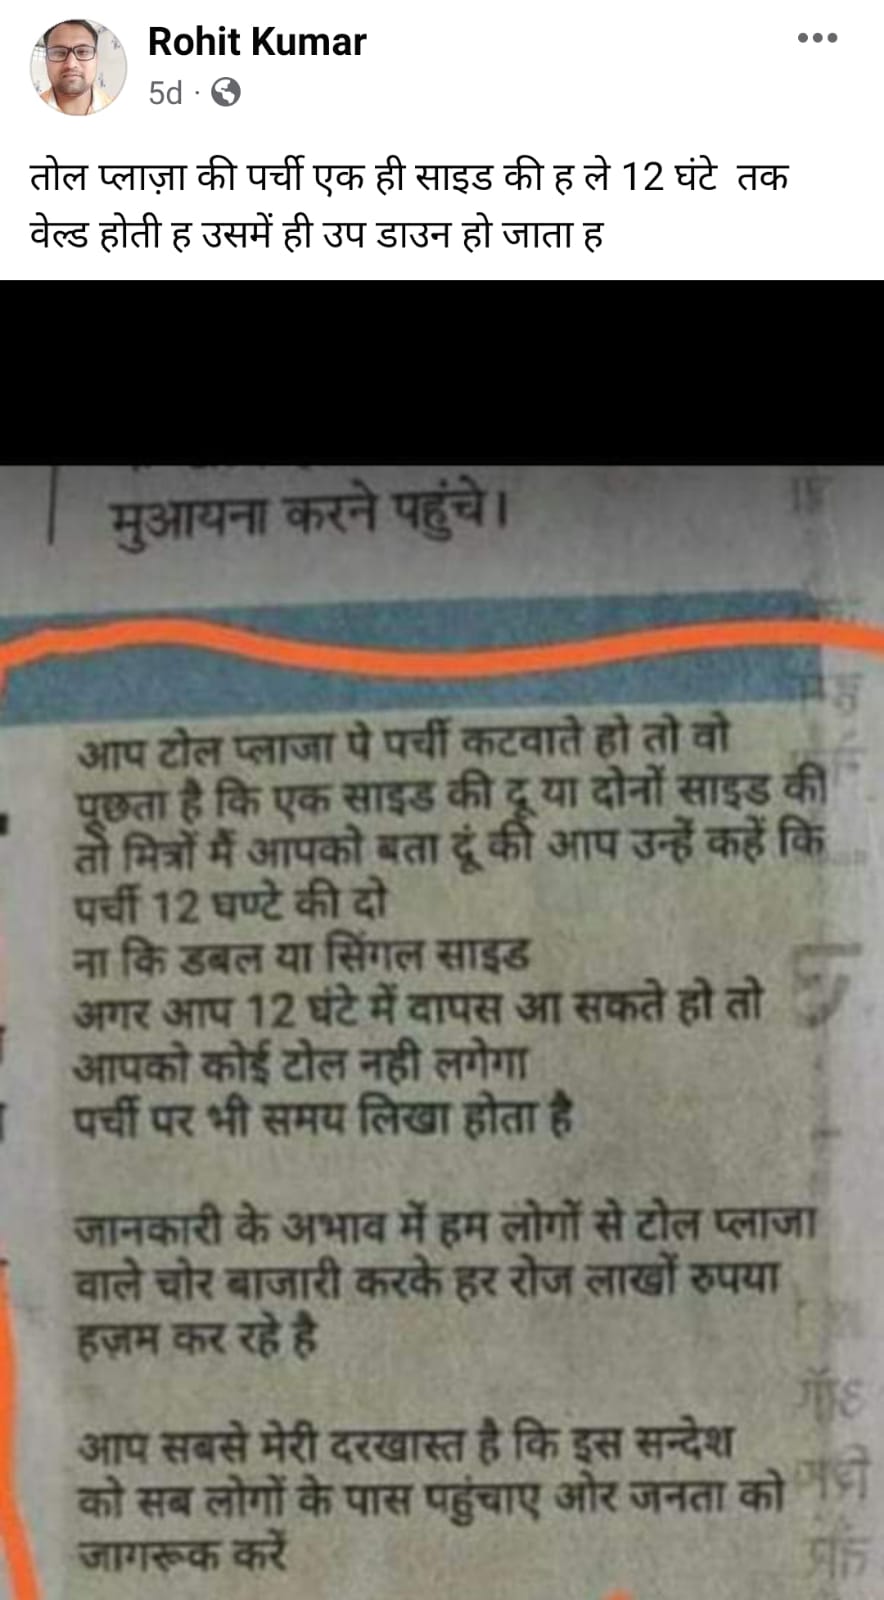 Rohit Kumar
5d
तोल प्लाज़ा की पर्ची एक ही साइड की ह ले 12 घंटे तक
वेल्ड होती ह उसमें ही उप डाउन हो जाता ह
मुआयना करने पहुंचे।
आप टोल प्लाजा पे पर्ची कटवाते हो तो वो
पूछता है कि एक साइड की दू या दोनों साइड की
तो मित्रों मैं आपको बता दूं की आप उन्हें कहें कि
पर्ची 12 घण्टे की दो
ना कि डबल या सिंगल साइड
अगर आप 12 घंटे में वापस आ सकते हो तो
आपको कोई टोल नही लगेगा
पर्ची पर भी समय लिखा होता है
जानकारी के अभाव में हम लोगों से टोल प्लाजा
वाले चोर बाजारी करके हर रोज लाखों रुपया
हज़म कर रहे है
आप सबसे मेरी दरखास्त है कि इस सन्देश
को सब लोगों के पास पहुंचाए ओर जनता को
जागरूक करें